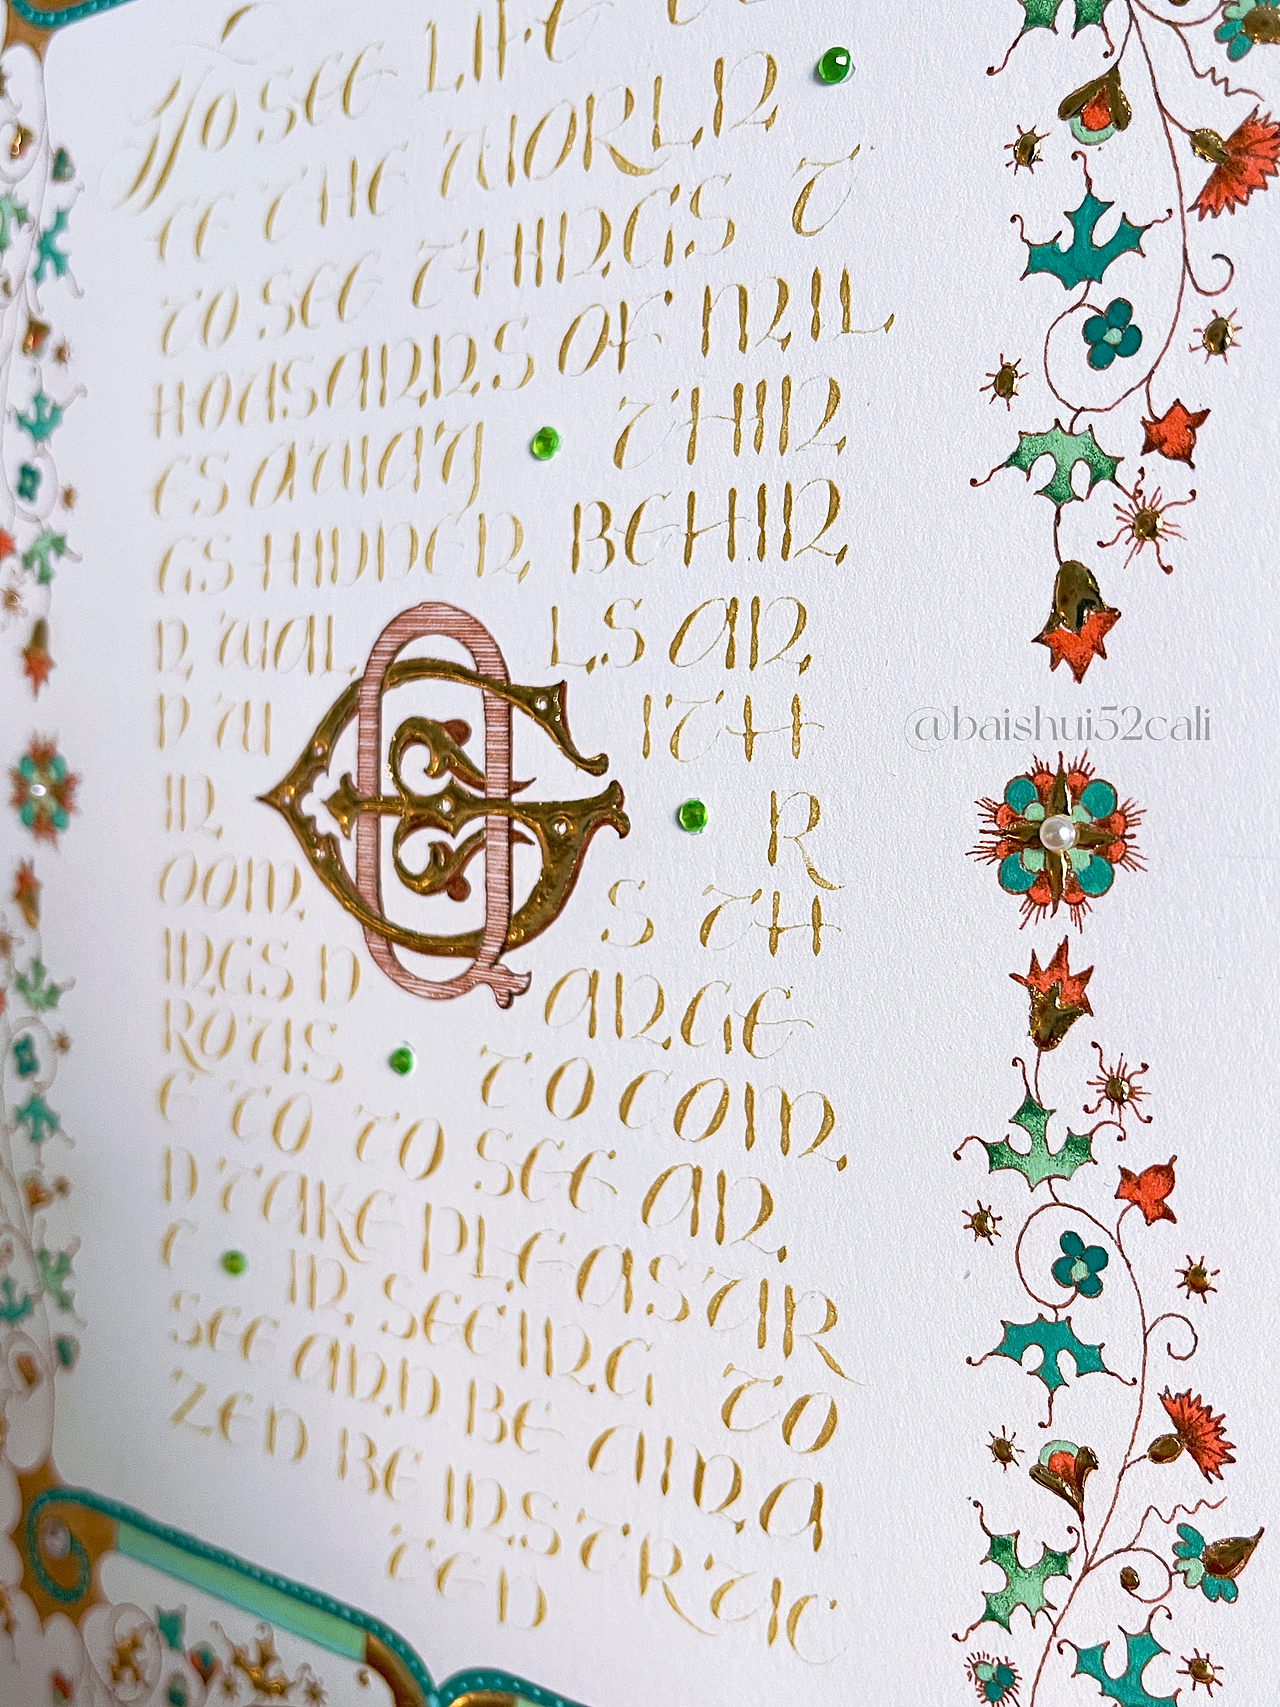 TO SEE LIFE
EE THE WORLD
TO SEE THINGS T
HOUSANDS OF MIL
ES AWAY THIN
GS HIDDEN BEHIN
D WAL LS AN
D W ITH
IN R
OOM S TH
INGS D ANGE
ROUS TO COM
E TO TO SEE AN
D TAKE PLEASUR
E IN SEEING TO
SEE AND BE AMA
ZED BE INSTRUC
TED
@baishui52cali